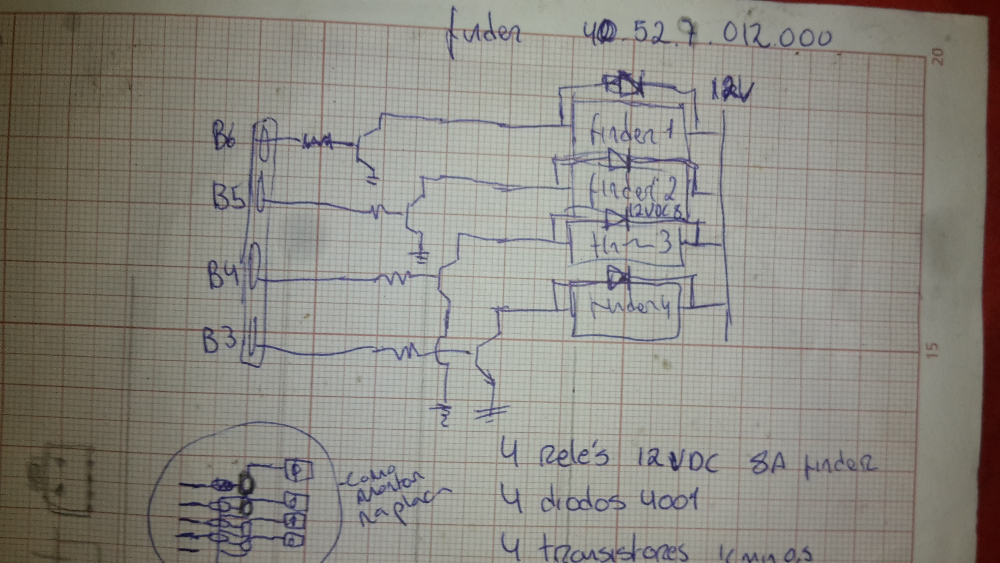 finder 40.52.7.012.000
20
12V
B6
finder 1
B5
finder 2
12VDC 8
B4
3
B3
finder 4
15
4 relé's 12VDC 8A finder
como
montar
na placa
4 diodos 4001
4 transistores